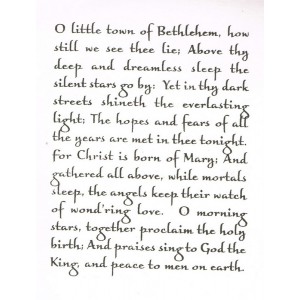 O little town of Bethlehem, how
still we see thee lie; Above thy
deep and dreamless sleep the
silent stars go by: Yet in thy dark
streets shineth the everlasting
light; The hopes and fears of all
the years are met in thee tonight.
for Christ is born of Mary; And
gathered all above, while mortals
sleep, the angels keep their watch
of wond'ring love. O morning
stars, together proclaim the holy
birth; And praises sing to God the
King, and peace to men on earth.